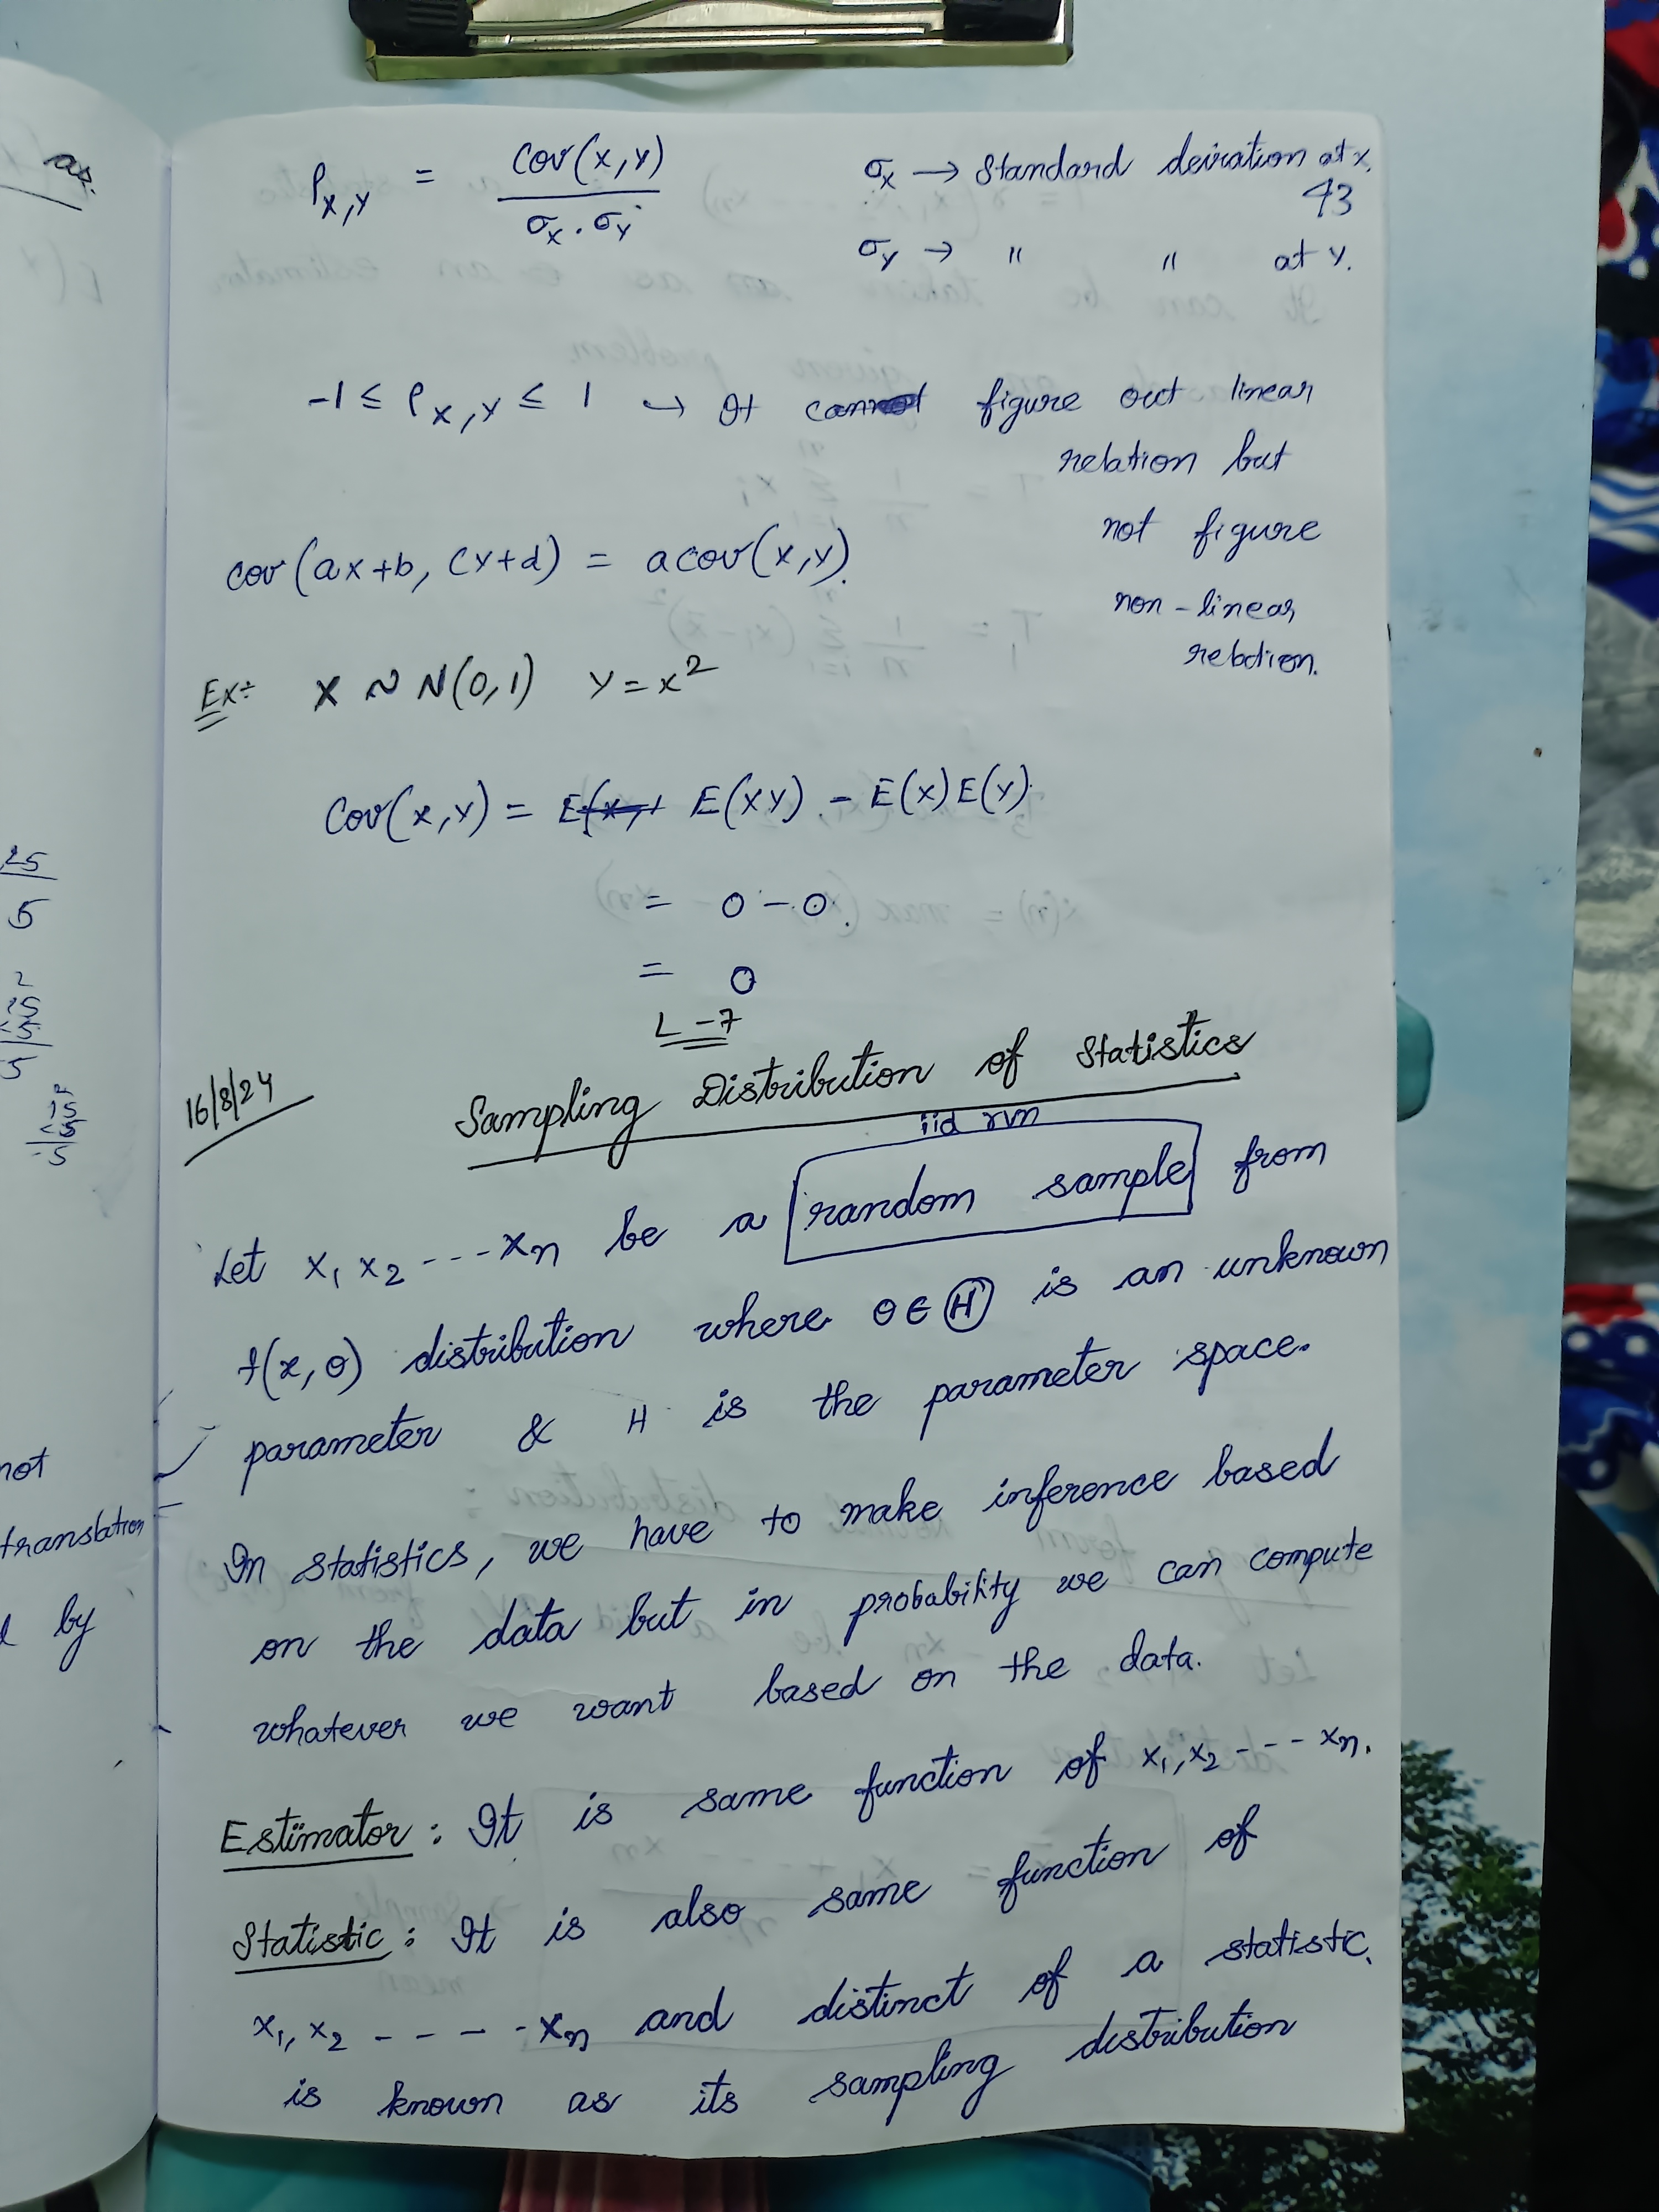 ρx,y = cov(x,y) / σx . σy
σx → Standard deviation at x.
43
σy → " " at y.
-1 ≤ ρx,y ≤ 1 ↪ It can figure out linear
relation but
not figure
non-linear
relation.
cov(ax+b, cy+d) = a cov(x,y).
Ex:- X ~ N(0,1) Y = x²
Cov(x,y) = E(XY) - E(x)E(y).
= 0 - 0.
= 0
L-7
16/8/24
Sampling Distribution of Statistics
iid rvn
Let x₁ x₂ ---xn be a random sample from
f(x, θ) distribution where θ ∈ Ⓗ is an unknown
parameter & H is the parameter space.
In statistics, we have to make inference based
on the data but in probability we can compute
whatever we want based on the data.
Estimator : It is same function of x₁, x₂ --- xn.
Statistic : It is also same function of
x₁, x₂ - - - - - xn and distinct of a statistic.
is known as its sampling distribution
ax.
25
5
2
not
translation
by